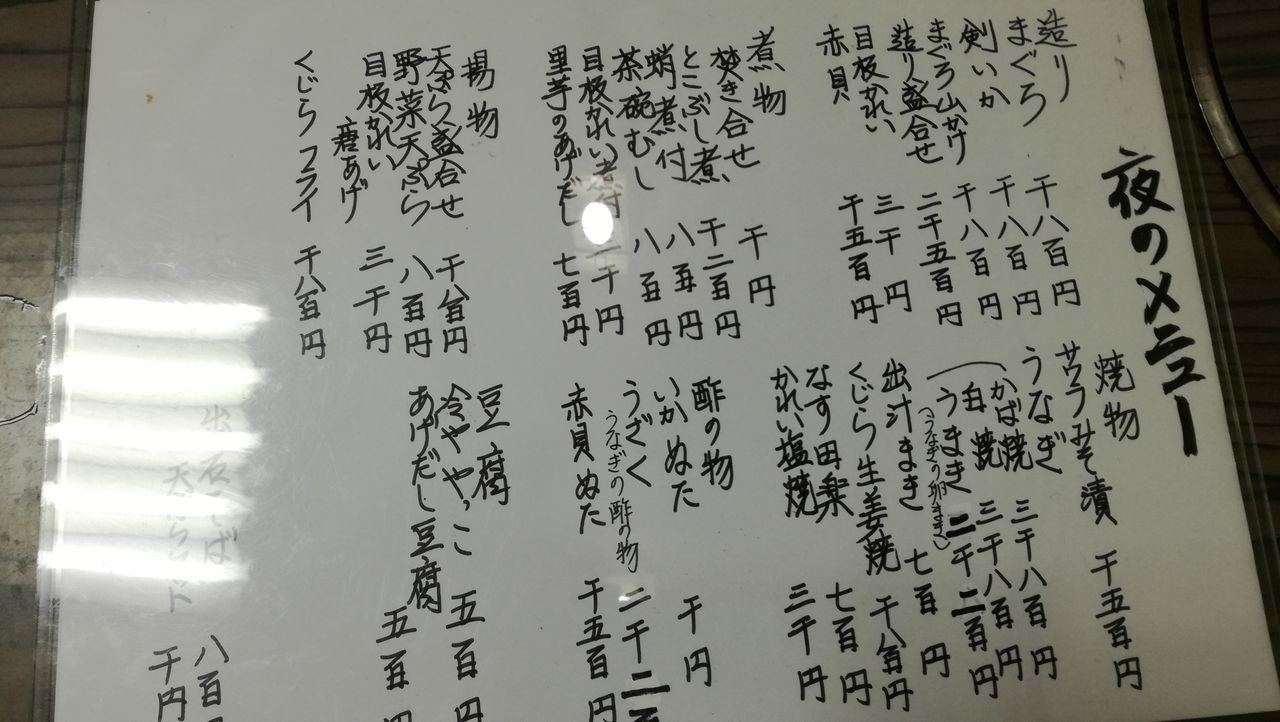 夜のメニュー
造り
まぐろ 千八百円
剣いか 千八百円
まぐろ山かけ 千八百円
造り盛合せ 二千五百円
目板かれい 三千円
赤貝 千五百円
煮物
焚き合せ 千円
とこぶし煮 千二百円
蛸煮付 八百円
茶碗むし 八百円
目板かれい煮付 三千円
里芋のあげだし 七百円
揚物
天ぷら盛合せ 千八百円
野菜天ぷら 八百円
目板かれい
唐あげ 三千円
くじらフライ 千八百円
焼物
サワラみそ漬 千五百円
うなぎ
かば焼 三千八百円
白焼 三千八百円
うまき 二千二百円
(うなぎの卵まき)
出汁まき 七百円
くじら生姜焼 千八百円
なす田楽 七百円
かれい塩焼 三千円
酢の物
いかぬた 千円
うざく 二千二百
うなぎの酢の物
赤貝ぬた 千五百円
豆腐
冷ややっこ 五百円
あげだし豆腐 五百円
出石そば 八百円
千円